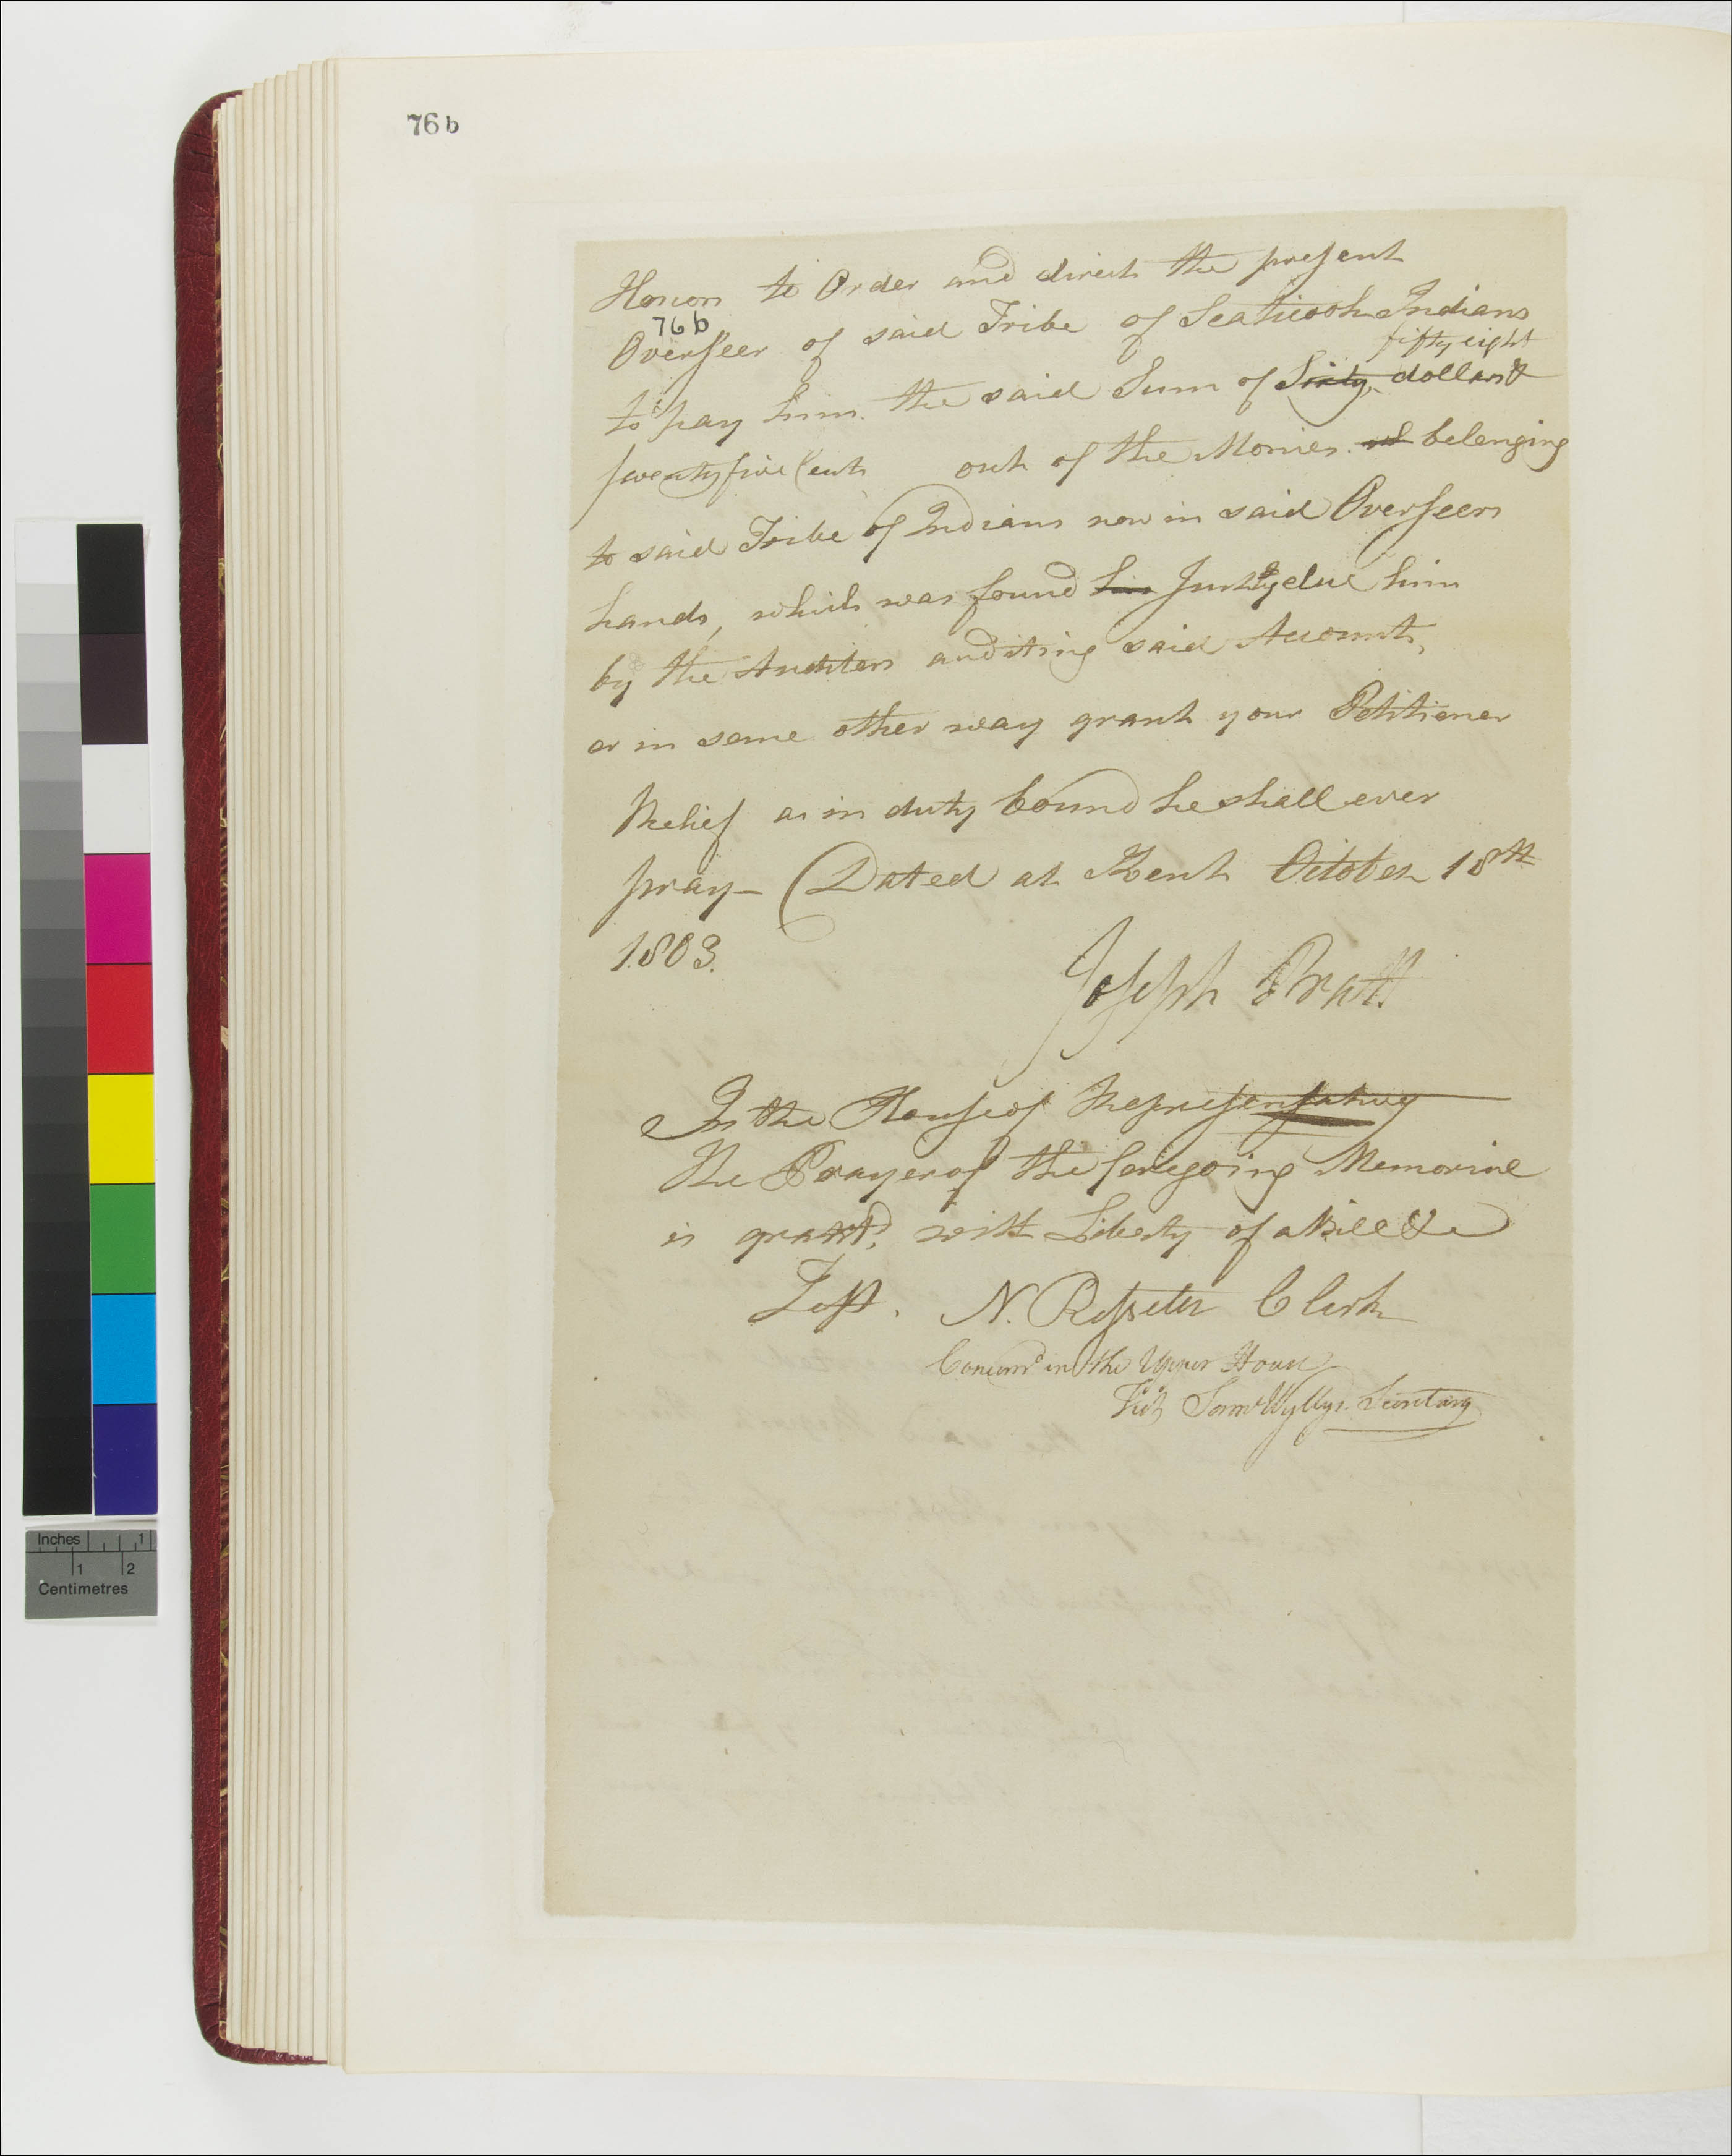 76 b
Honors to Order and direct the present
76 b
Overseer of said Tribe of Scaticook Indians
fifty eight
to pay him the said Sum of Sixty dollars &
twenty five Cents out of the Monies belonging
to said Tribe of Indians now in said Overseers
hands, which was found Justly due him
by the Auditors auditing said Accounts,
or in some other way grant your Petitioner
Relief as in duty bound he shall ever
pray— Dated at Kent October 18th
1803.
Joseph Pratt
In the House of Representatives
the Prayer of the foregoing Memorial
is grantd. with Liberty of a Bill &c
Test. N. Rosseter Clerk
Concurrd in the Upper House
Test Saml Wyllys Secretary
Inches 1
1 2
Centimetres